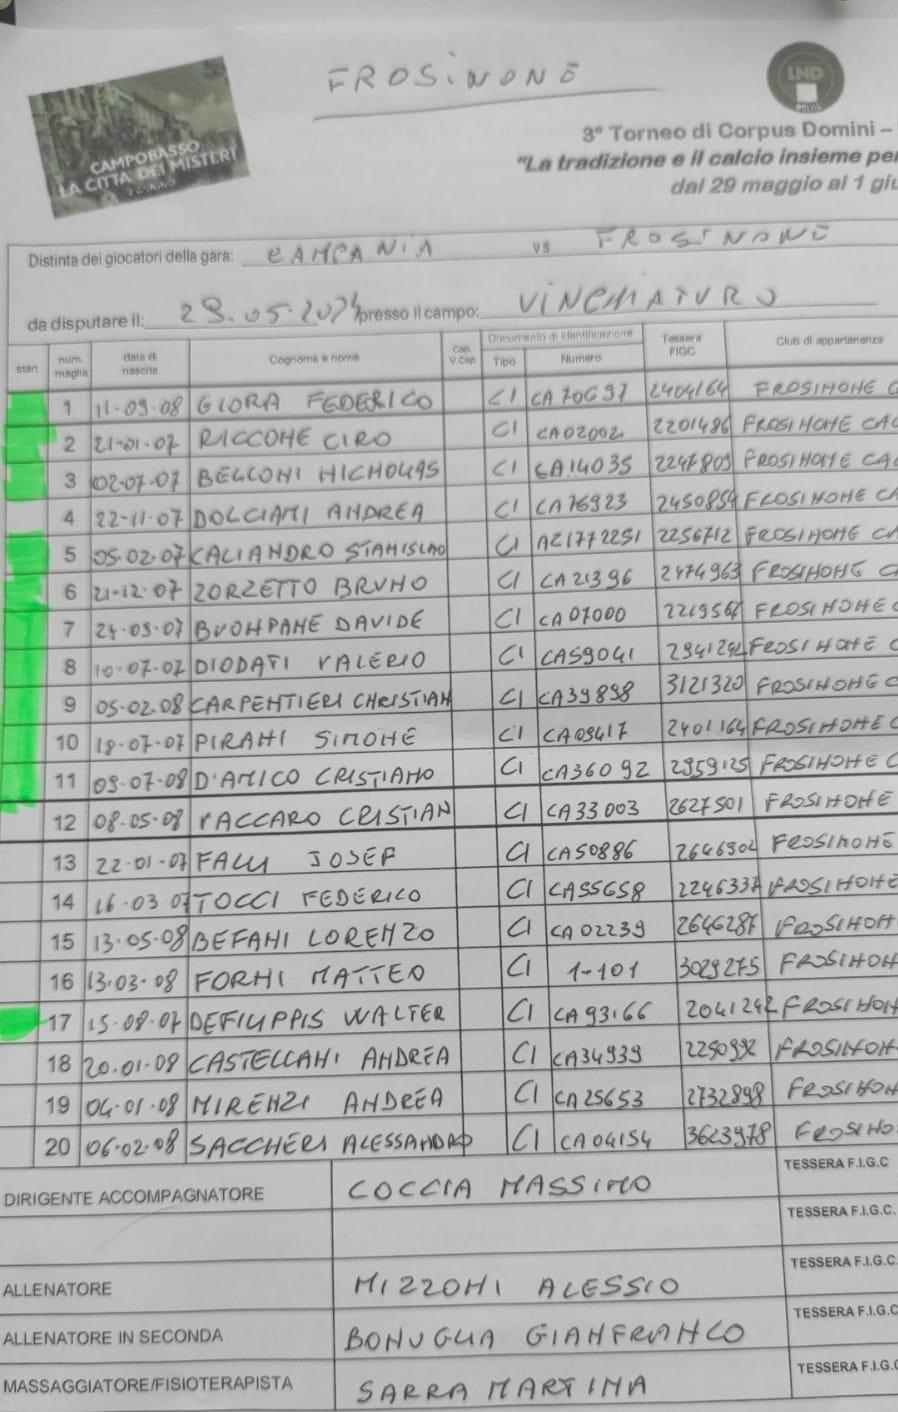 FROSINONE
LND
CAMPOBASSO
LA CITTÀ DEI MISTERI
3° Torneo di Corpus Domini –
"La tradizione e il calcio insieme per
dal 29 maggio al 1 giu
Distinta dei giocatori della gara: CAMPANIA vs FROSINONE
da disputare il: 29.05.2024 presso il campo: VINCHIATURO
start num. maglia data di nascita Cognome e nome Cap. V.Cap Documento di identificazione Tipo Numero Tessera FIGC Club di appartenenza
1 11-09-08 GIORA FEDERICO CI CA70697 2404164 FROSINONE C
2 21-01-07 RICCONE CIRO CI CA02002 2201486 FROSINONE CAC
3 02-07-07 BELLONI NICHOLAS CI CA14035 2247805 FROSINONE CA
4 22-11-07 DOLCIAMI ANDREA CI CA76923 2450854 FROSINONE CA
5 05.02.07 CALIANDRO STANISLAO CI AZ1772251 2256712 FROSINONE CA
6 21-12-07 ZORZETTO BRUNO CI CA21396 2474963 FROSINONE C
7 24-09-07 BUONPANE DAVIDE CI CA07000 2219567 FROSINONE C
8 10-07-07 DIODATI VALERIO CI CA59041 FROSINONE C
9 05-02.08 CARPENTIERI CHRISTIAN CI CA39898 3121320 FROSINONE C
10 18-07-07 PIRANI SIMONE CI CA09417 2401164 FROSINONE C
11 09-07-08 D'AMICO CRISTIANO CI CA36092 2959125 FROSINONE C
12 08-05-08 VACCARO CRISTIAN CI CA33003 2627501 FROSINONE
13 22-01-07 FALLI JOSEF CI CA50886 2646902 FROSINONE
14 16-03 07 TOCCI FEDERICO CI CA55658 2246337 FROSINONE
15 13-05-08 BEFANI LORENZO CI CA02239 2646287 FROSINON
16 13-03-08 FORNI MATTEO CI 1-101 3029275 FROSINON
17 15-08-07 DEFILIPPIS WALTER CI CA93166 2041242 FROSINON
18 20.01-08 CASTELLANI ANDREA CI CA34939 2250992 FROSINON
19 04-01-08 MIRENZI ANDREA CI CA25653 2732898 FROSINON
20 06-02-08 SACCHERI ALESSANDRO CI CA04154 3623978 FROSINO
TESSERA F.I.G.C
DIRIGENTE ACCOMPAGNATORE COCCIA MASSIMO
TESSERA F.I.G.C.
TESSERA F.I.G.C
ALLENATORE MIZZONI ALESSIO
TESSERA F.I.G.C
ALLENATORE IN SECONDA BONUGLIA GIANFRANCO
TESSERA F.I.G.C
MASSAGGIATORE/FISIOTERAPISTA SARRA MARTINA